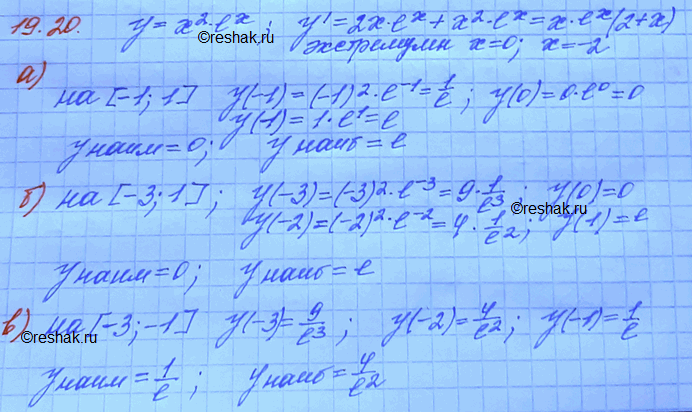 19.20. y = x² · eˣ ; y' = 2x · eˣ + x² · eˣ = x · eˣ (2+x)
©reshak.ru
экстремумы x=0; x=-2
а)
на [-1; 1] y(-1) = (-1)² · e⁻¹ = 1/e ; y(0) = 0 · e⁰ = 0
y(1) = 1 · e¹ = e
y наим = 0; y наиб = e
б) на [-3; 1] ; y(-3) = (-3)² · e⁻³ = 9 · 1/e³ ; y(0) = 0
©reshak.ru
y(-2) = (-2)² · e⁻² = 4 · 1/e² ; y(1) = e
y наим = 0; y наиб = e
в) на [-3; -1] y(-3) = 9/e³ ; y(-2) = 4/e² ; y(-1) = 1/e
©reshak.ru
y наим = 1/e ; y наиб = 4/e²